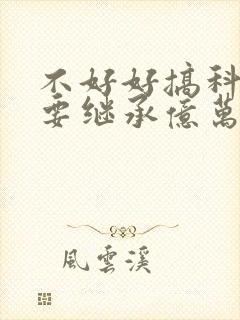 不好好搞科
要继承億萬
風雲溪